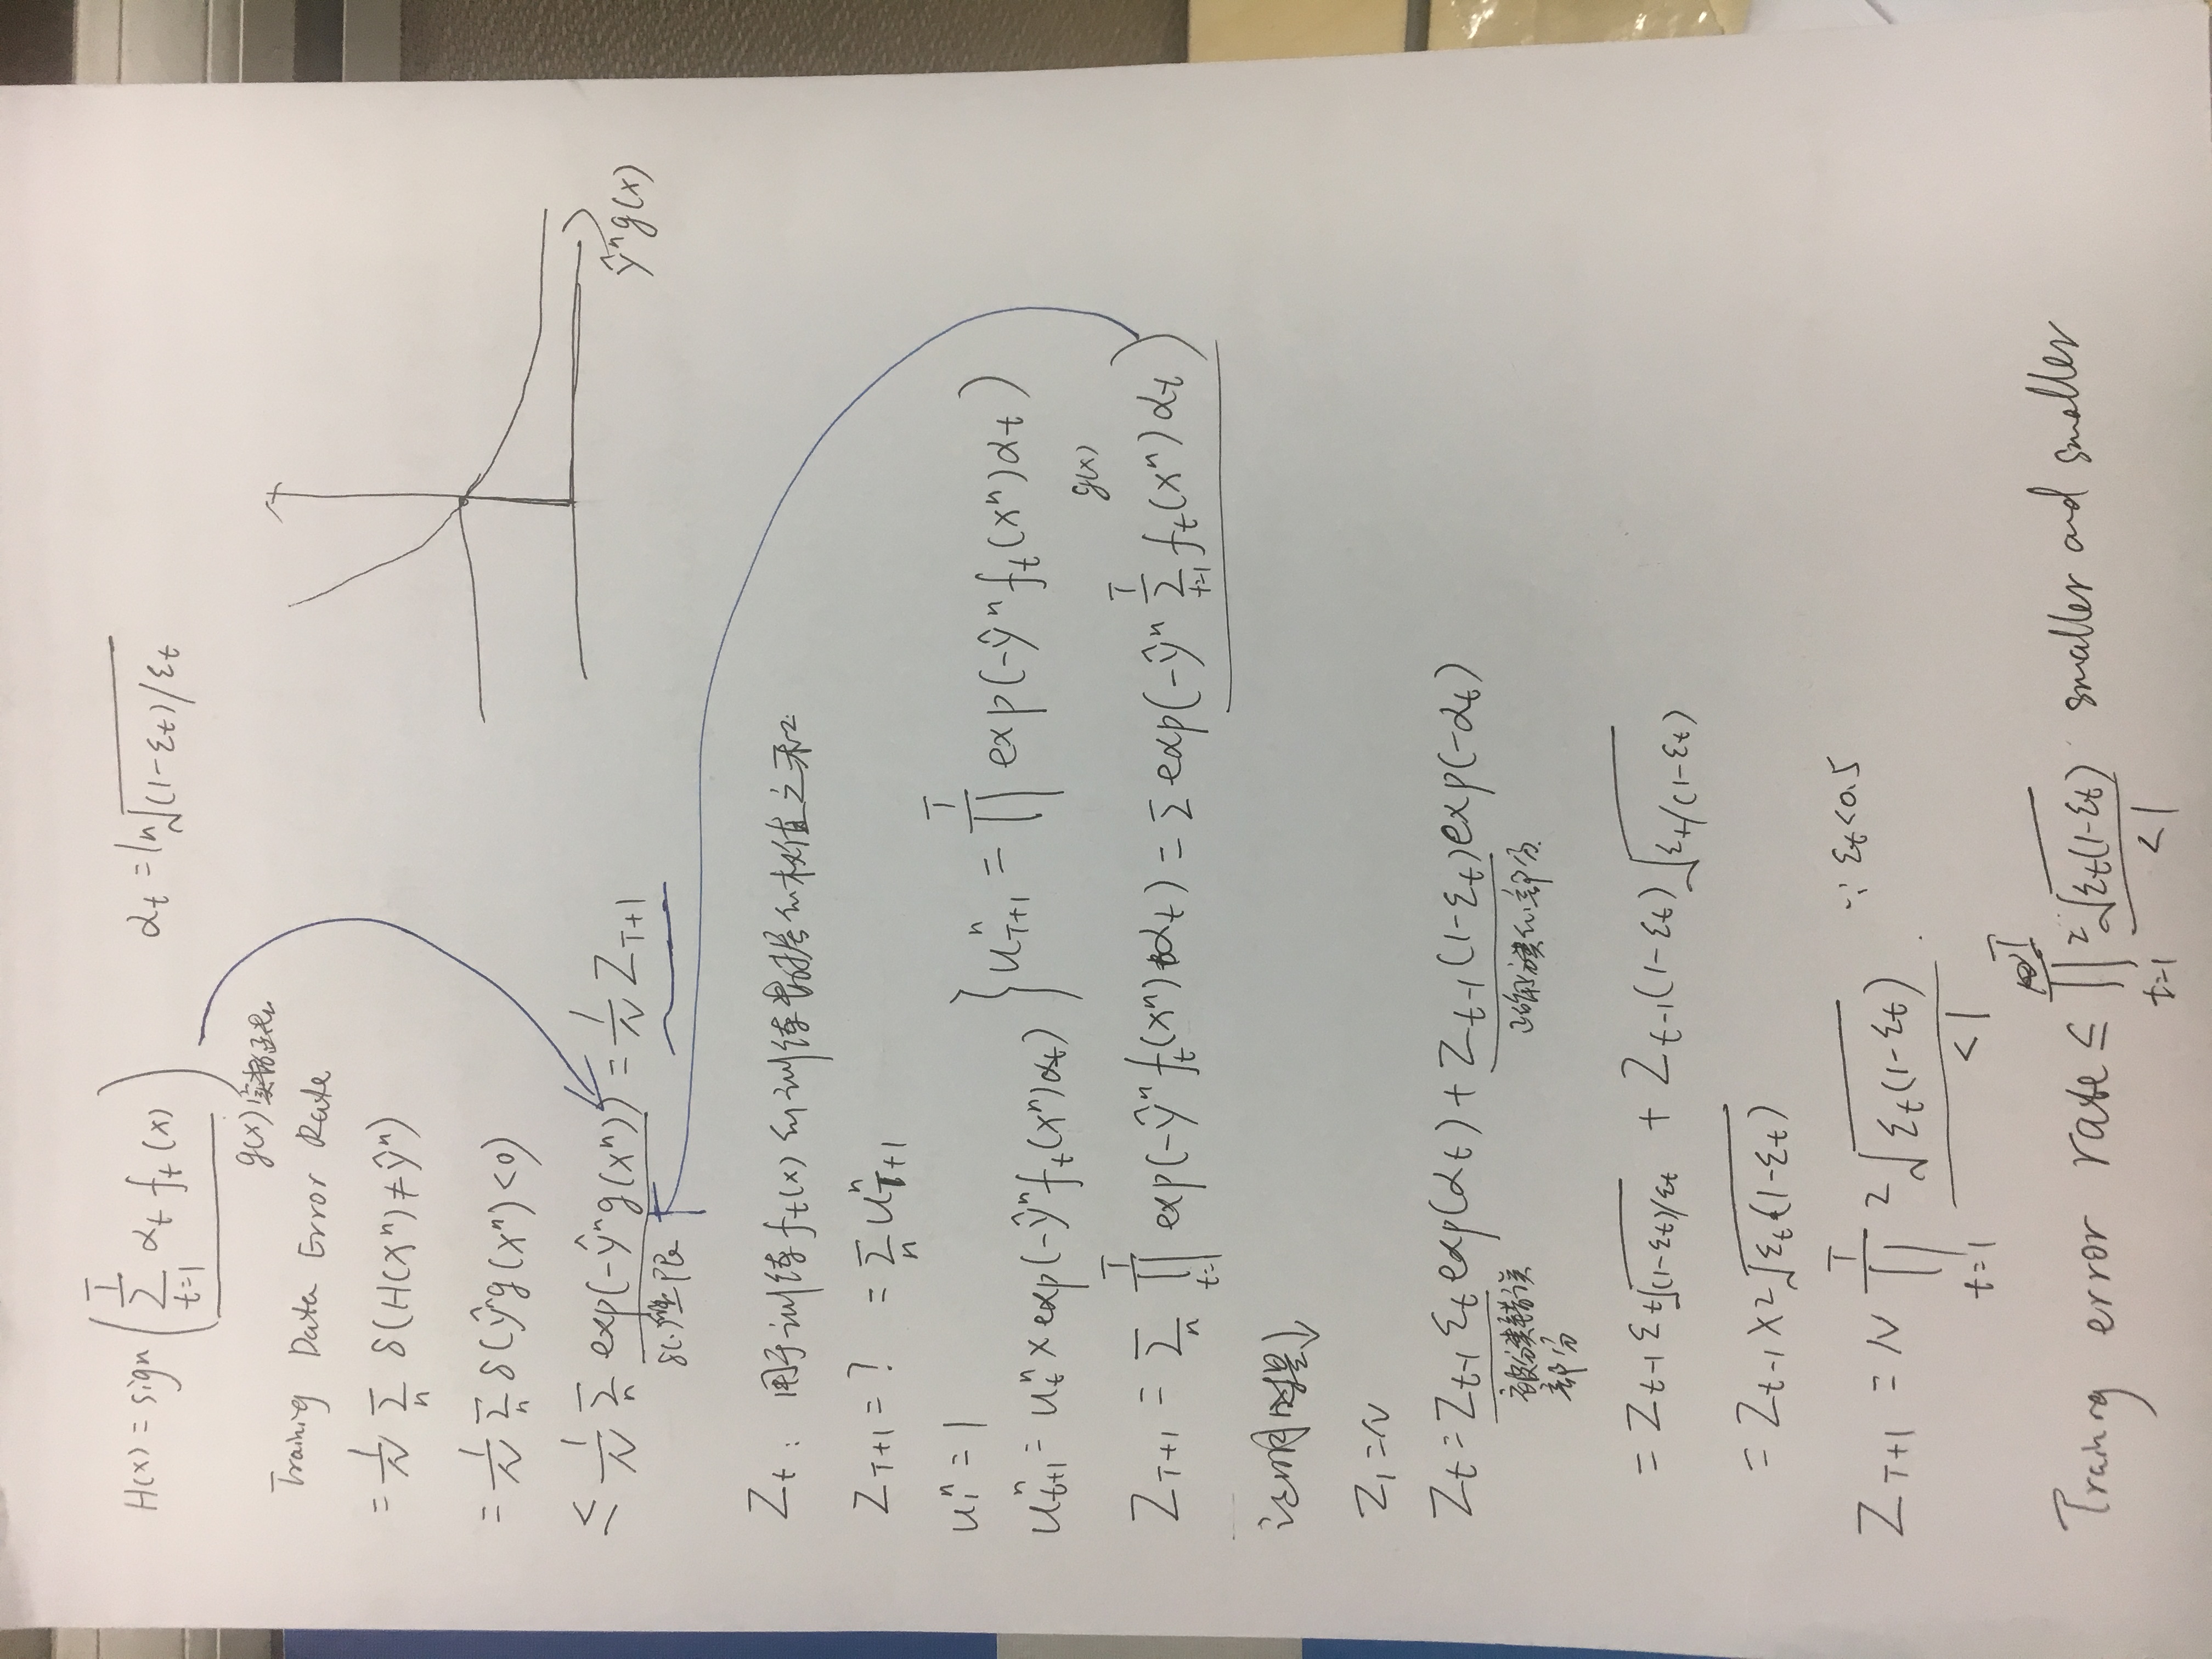 H(x) = sign( Σ_{t=1}^{T} α_t f_t(x) )    α_t = ln√((1-ε_t)/ε_t)
g(x)
Training Data Error Rate
= 1/N Σ_n δ(H(x^n) ≠ ŷ^n)
= 1/N Σ_n δ(ŷ^n g(x^n) < 0)
≤ 1/N Σ_n exp(-ŷ^n g(x^n)) = 1/N Z_{T+1}
δ(·)上限
ŷ^n g(x)
Z_t: 用于训练f_t(x)的训练数据的权值之和
Z_{T+1} = ? = Σ_n u^n_{T+1}
u_1^n = 1
u^n_{t+1} = u^n_t × exp(-ŷ^n f_t(x^n) α_t) } u^n_{T+1} = ∏^T exp(-ŷ^n f_t(x^n) α_t)
g(x)
Z_{T+1} = Σ_n ∏_{t=1}^{T} exp(-ŷ^n f_t(x^n) α_t) = Σ exp(-ŷ^n Σ_{t=1}^{T} f_t(x^n) α_t)
证明
Z_1 = N
Z_t = Z_{t-1} ε_t exp(α_t) + Z_{t-1} (1-ε_t) exp(-α_t)
被分类错误 正确分类的部分
部分
= Z_{t-1} ε_t √((1-ε_t)/ε_t) + Z_{t-1} (1-ε_t) √(ε_t/(1-ε_t))
= Z_{t-1} × 2√(ε_t(1-ε_t))
Z_{T+1} = N ∏_{t=1}^{T} 2√(ε_t(1-ε_t))    ∵ ε_t < 0.5
< 1
Training error rate ≤ ∏_{t=1}^{T} 2√(ε_t(1-ε_t)) smaller and smaller
< 1